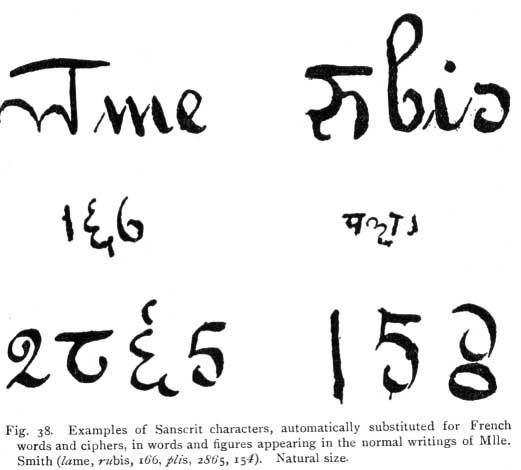 लme रुbis
1६6
2८६5 15४
Fig. 38. Examples of Sanscrit characters, automatically substituted for French
words and ciphers, in words and figures appearing in the normal writings of Mlle.
Smith (lame, rubis, 166, plis, 2865, 154). Natural size.